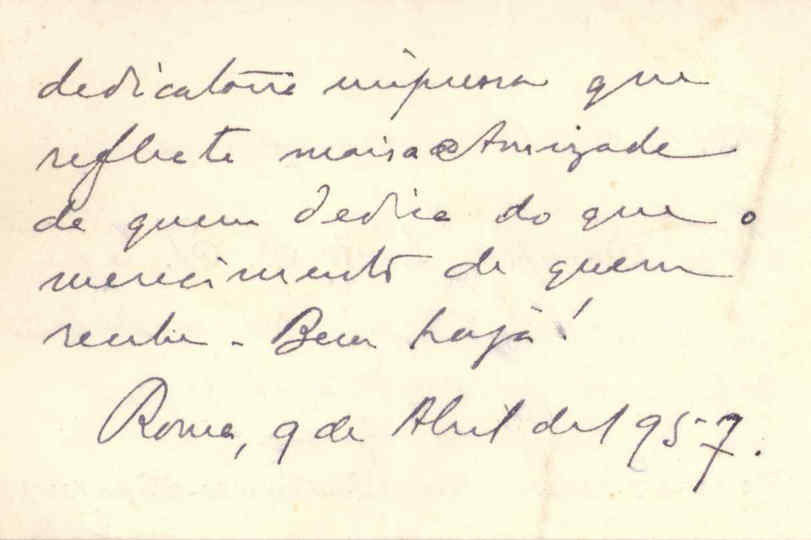 dedicatória impressa que
reflecte mais a Amizade
de quem dedica do que o
merecimento de quem
recebe - Bem haja!
Roma, 9 de Abril de 1957.